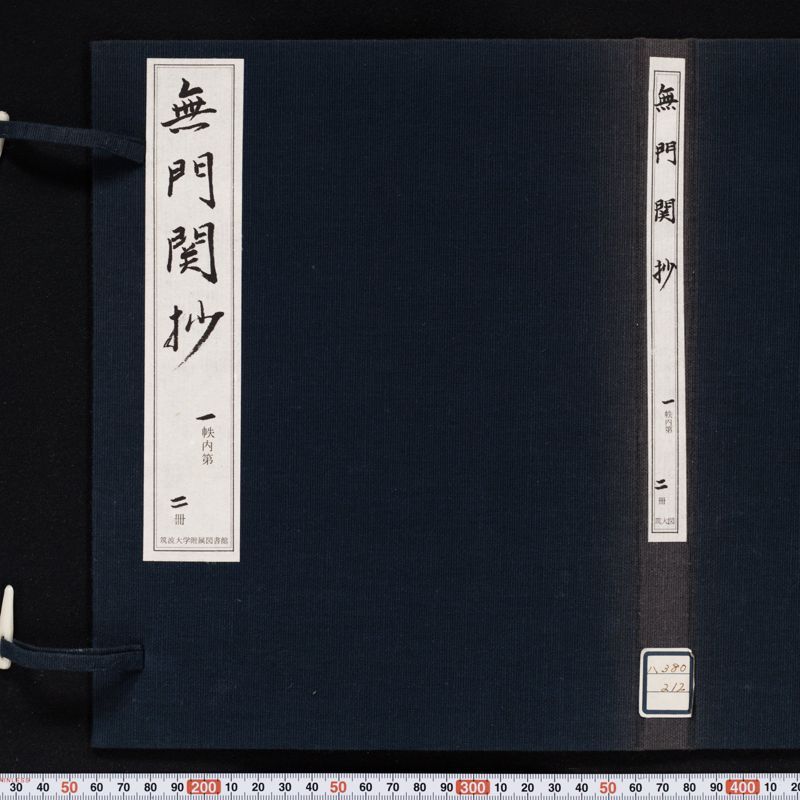 無門関抄
一
帙内第
二
冊
筑波大学附属図書館
無門関抄
一
帙内第
二
冊
筑大図
ハ380
212
30 40 50 60 70 80 90 200 10 20 30 40 50 60 70 80 90 300 10 20 30 40 50 60 70 80 90 400 10 20